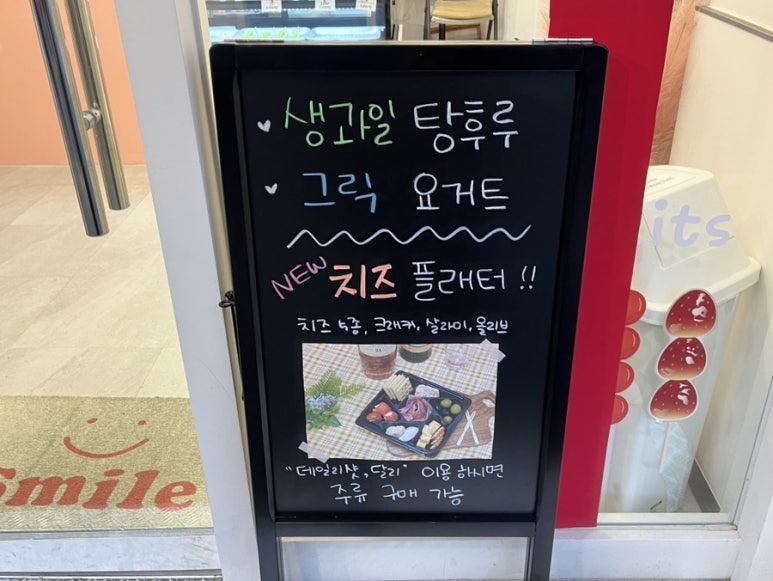 생과일 탕후루
그릭 요거트
NEW 치즈 플래터 !!
치즈 5종, 크래커, 살라미, 올리브
"데일리샷, 달리" 이용하시면
주류 구매 가능
its
Smile